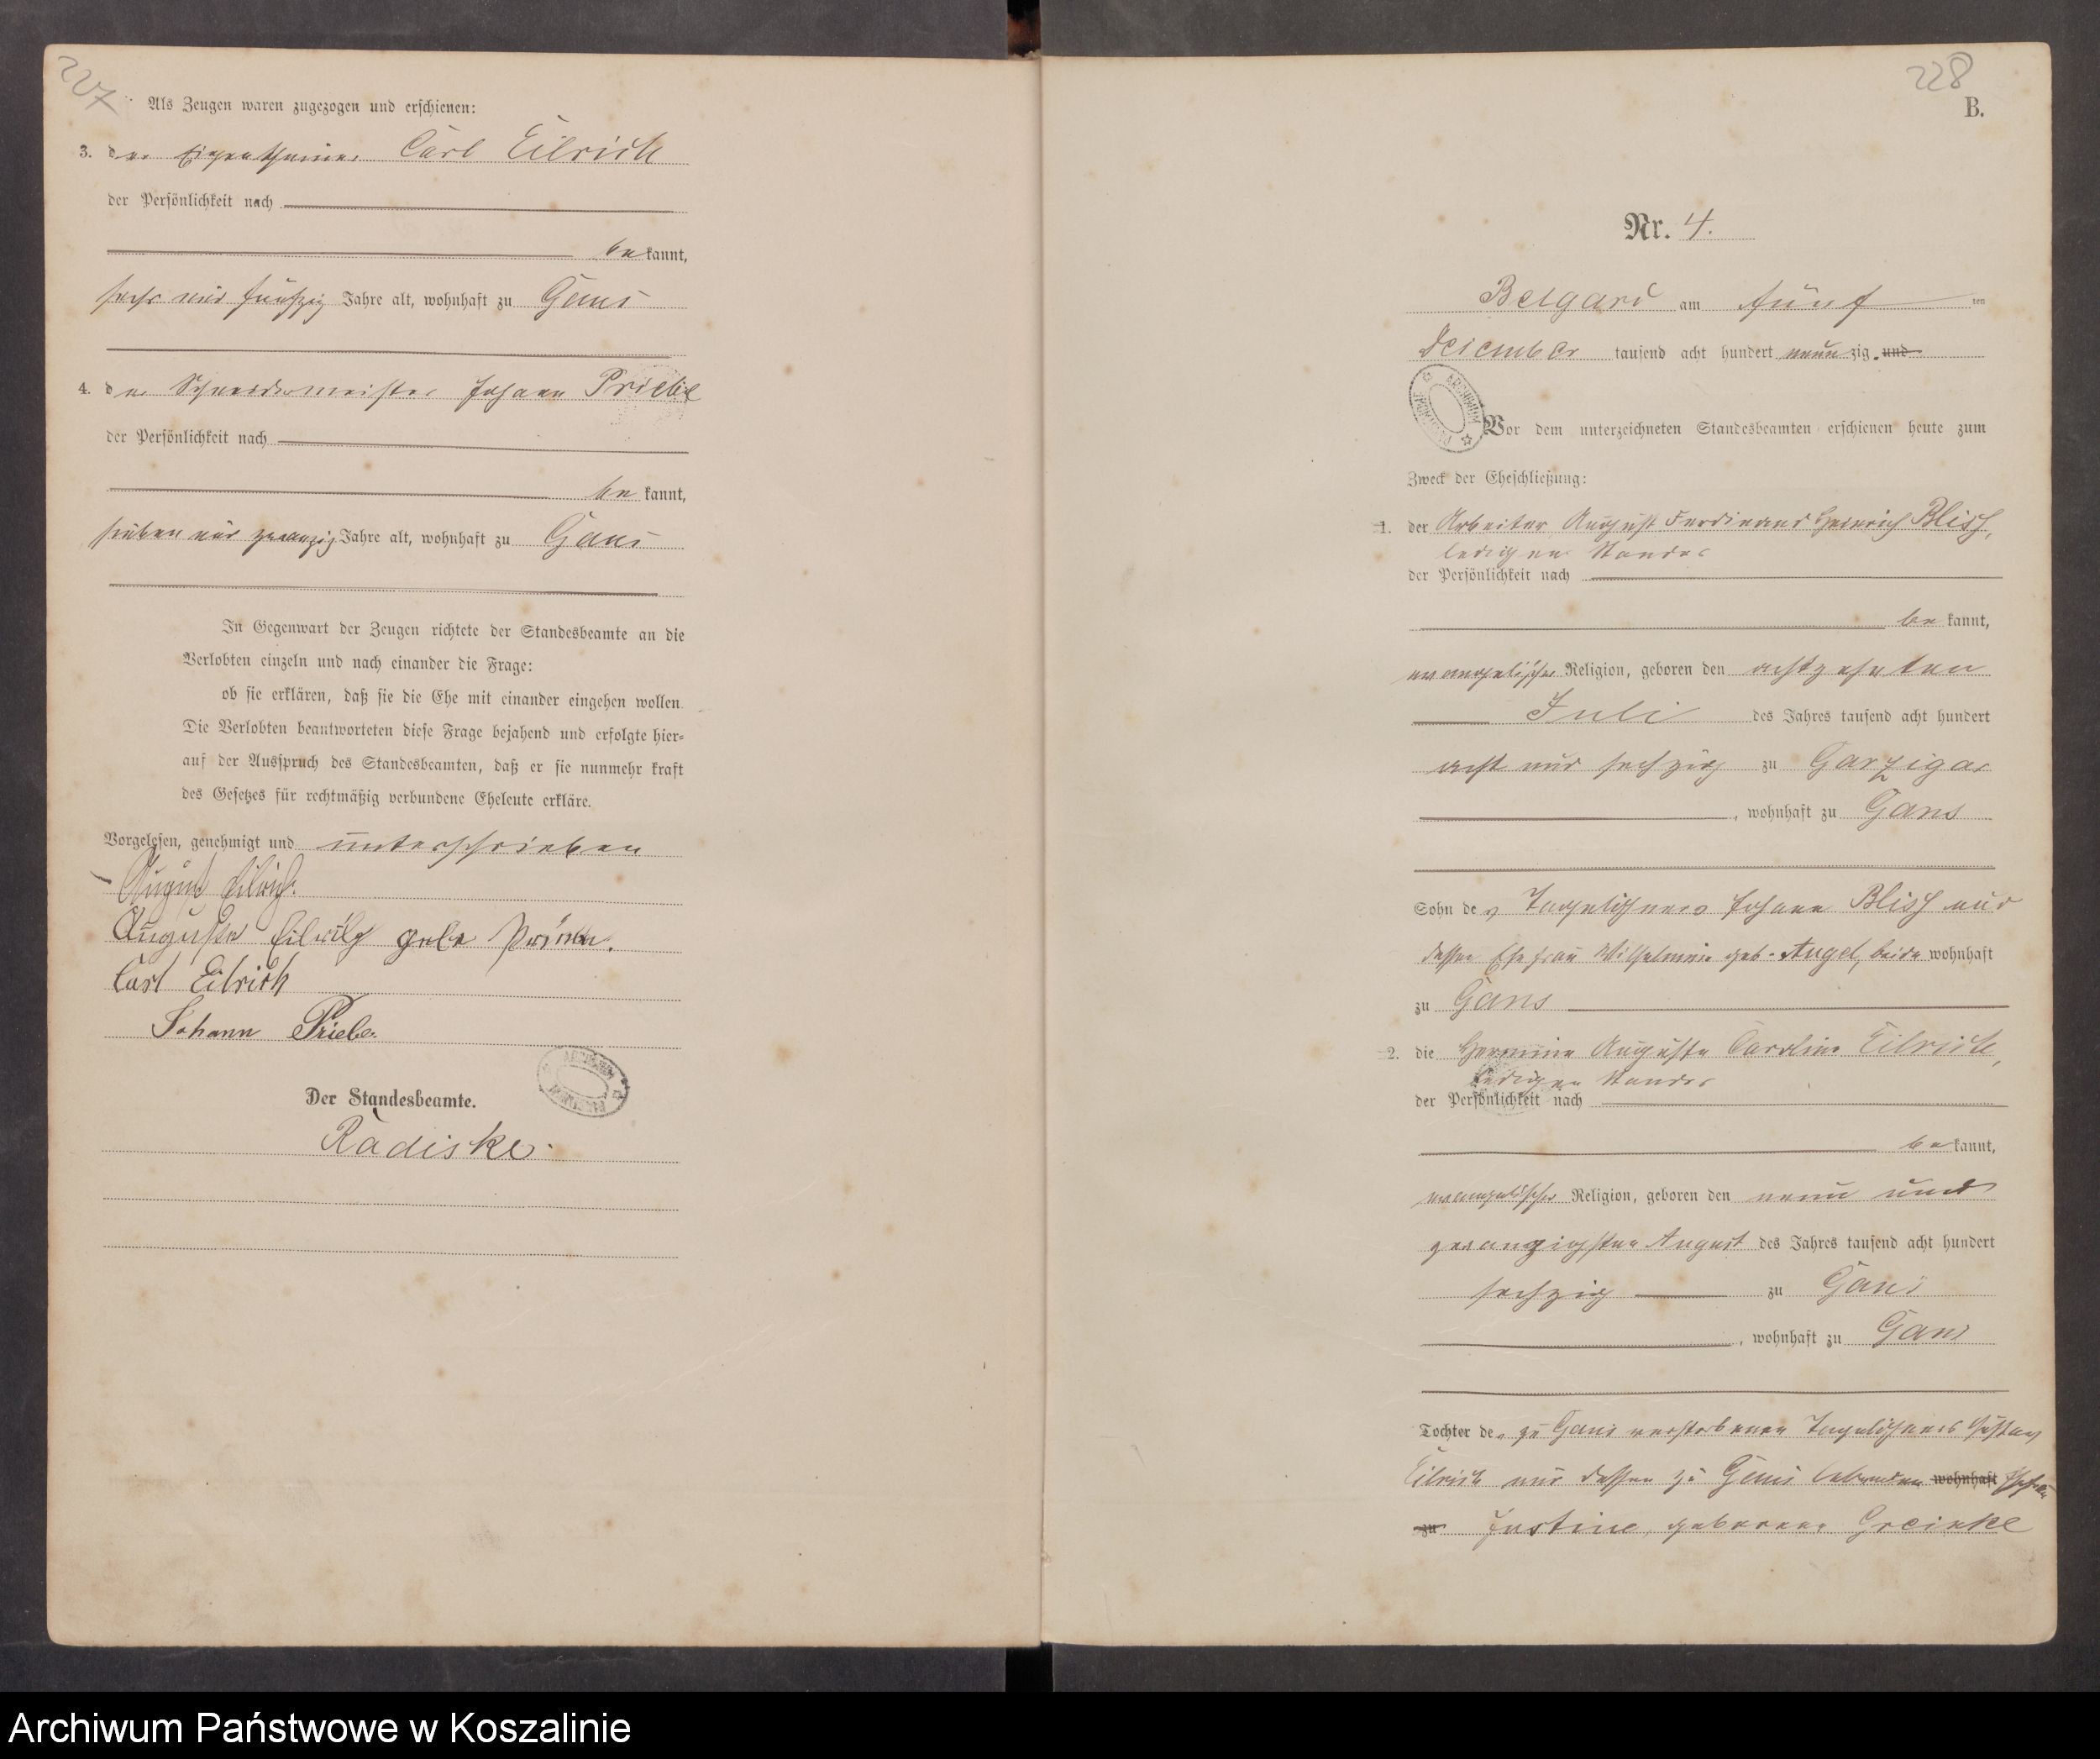 227
Als Zeugen waren zugezogen und erschienen:
3. der Eigenthümer Carl Eilrich
der Persönlichkeit nach
bekannt,
sechs und fünfzig Jahre alt, wohnhaft zu Gans
4. der Schneidermeister Johann Priebe
der Persönlichkeit nach
bekannt,
sieben und zwanzig Jahre alt, wohnhaft zu Gans
In Gegenwart der Zeugen richtete der Standesbeamte an die
Verlobten einzeln und nach einander die Frage:
ob sie erklären, daß sie die Ehe mit einander eingehen wollen.
Die Verlobten beantworteten diese Frage bejahend und erfolgte hier-
auf der Ausspruch des Standesbeamten, daß er sie nunmehr kraft
des Gesetzes für rechtmäßig verbundene Eheleute erkläre.
Vorgelesen, genehmigt und unterschrieben
August Eilrich.
Auguste Eilrich geb
Carl Eilrich
Johann Priebe.
Der Standesbeamte.
Radiske.
228
B.
Nr. 4.
Belgard am fünften
Dezember tausend acht hundert neunzig und
Vor dem unterzeichneten Standesbeamten erschienen heute zum
Zweck der Eheschließung:
1. der Arbeiter August Ferdinand Heinrich Blisch,
ledigen Standes
der Persönlichkeit nach
bekannt,
evangelischer Religion, geboren den achtzehnten
Juli des Jahres tausend acht hundert
acht und sechzig zu Garzigar
, wohnhaft zu Gans
Sohn des Tagelöhners Johann Blisch und
dessen Ehefrau Wilhelmine geb. Angel, beide wohnhaft
zu Gans
2. die Hermine Auguste Caroline Eilrich,
ledigen Standes
der Persönlichkeit nach
bekannt,
evangelischer Religion, geboren den neun und
zwanzigsten August des Jahres tausend acht hundert
sechzig zu Gans
, wohnhaft zu Gans
Tochter des zu Gans verstorbenen Tagelöhners Gustav
Eilrich und dessen zu Gans lebenden wohnhaft Ehefrau
zu Justine, geborene Greinke
Archiwum Państwowe w Koszalinie